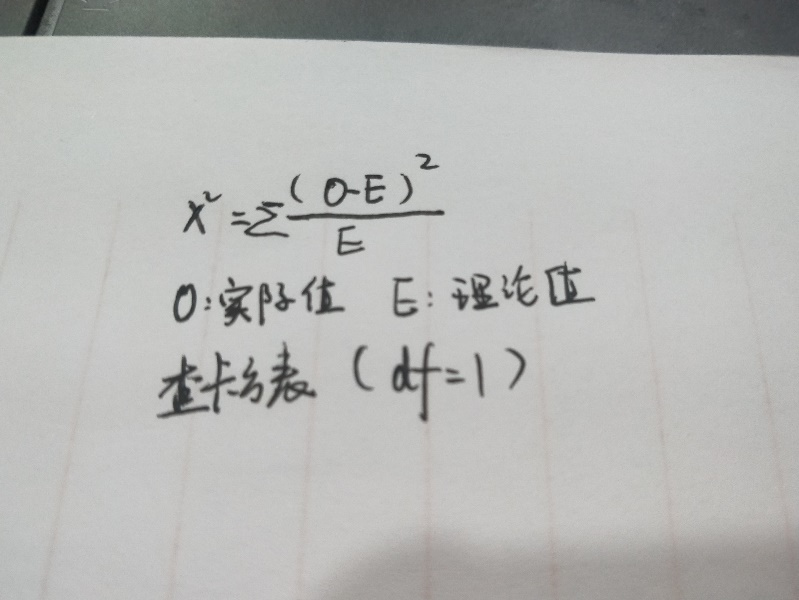 X²=Σ(O-E)²/E
O:实际值 E:理论值
查卡方表(df=1)